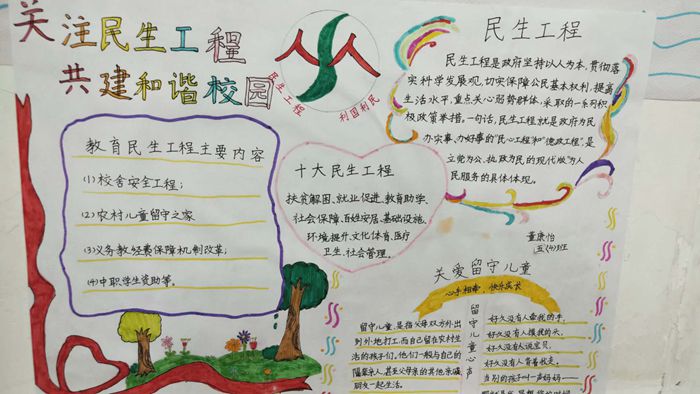 关注民生工程
共建和谐校园
民生工程
利国利民
民生工程
民生工程是政府坚持以人为本,贯彻落
实科学发展观,切实保障公民基本权利,提高
生活水平,重点关心弱势群体,采取的一系列积
极政策举措。一句话,民生工程就是政府为民
办实事、办好事的“民心工程”和“德政工程”,是
立党为公、执政为民的现代版“为人
民服务的具体体现。
董康怡
五(4)班
教育民生工程主要内容
(1)校舍安全工程;
(2)农村儿童留守之家
(3)义务教经费保障机制改革;
(4)中职学生资助等。
十大民生工程
扶贫解困、就业促进、教育助学、
社会保障、百姓安居、基础设施、
环境提升、文化体育、医疗
卫生、社会管理。
关爱留守儿童
心手相牵,快乐成长
留守儿童,是指父母双方外出
到外地打工,而自己留在农村生
活的孩子们。他们一般与自己的
隔辈亲人,甚至父母亲的其他亲戚
朋友一起生活。
留守儿童心声
好久没有人牵我的手,
好久没有人摸我的头,
好久没有人说宝贝,
好久没有人背着我走。
当别的孩子叫一声妈妈——